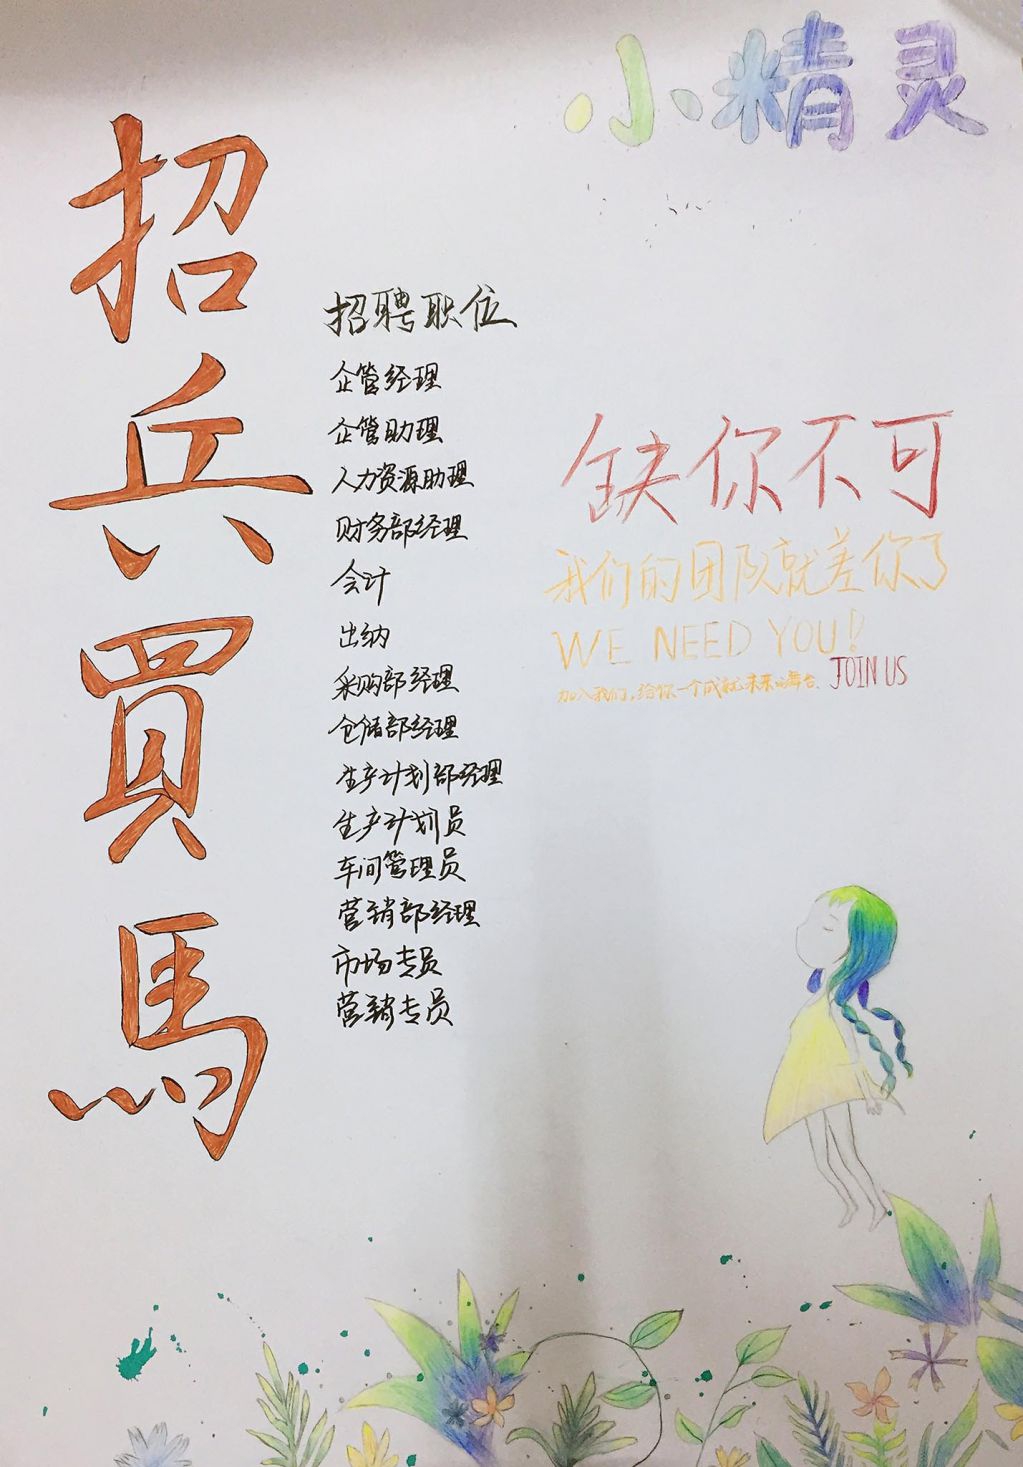 小精灵
招兵買馬
招聘职位
企管经理
企管助理
人力资源助理
财务部经理
会计
出纳
采购部经理
仓储部经理
生产计划部经理
生产计划员
车间管理员
营销部经理
市场专员
营销专员
缺你不可
我们的团队就差你了
WE NEED YOU!
加入我们,给你一个成就未来的舞台.
JOIN US